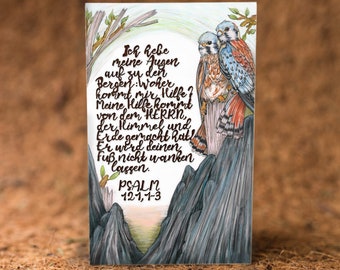 Ich hebe
meine Augen
auf zu den
Bergen: Woher
kommt mir Hilfe?
Meine Hilfe kommt
von dem HERRN,
der Himmel und
Erde gemacht hat!
Er wird deinen
Fuß nicht wanken
lassen.
PSALM
121,1-3